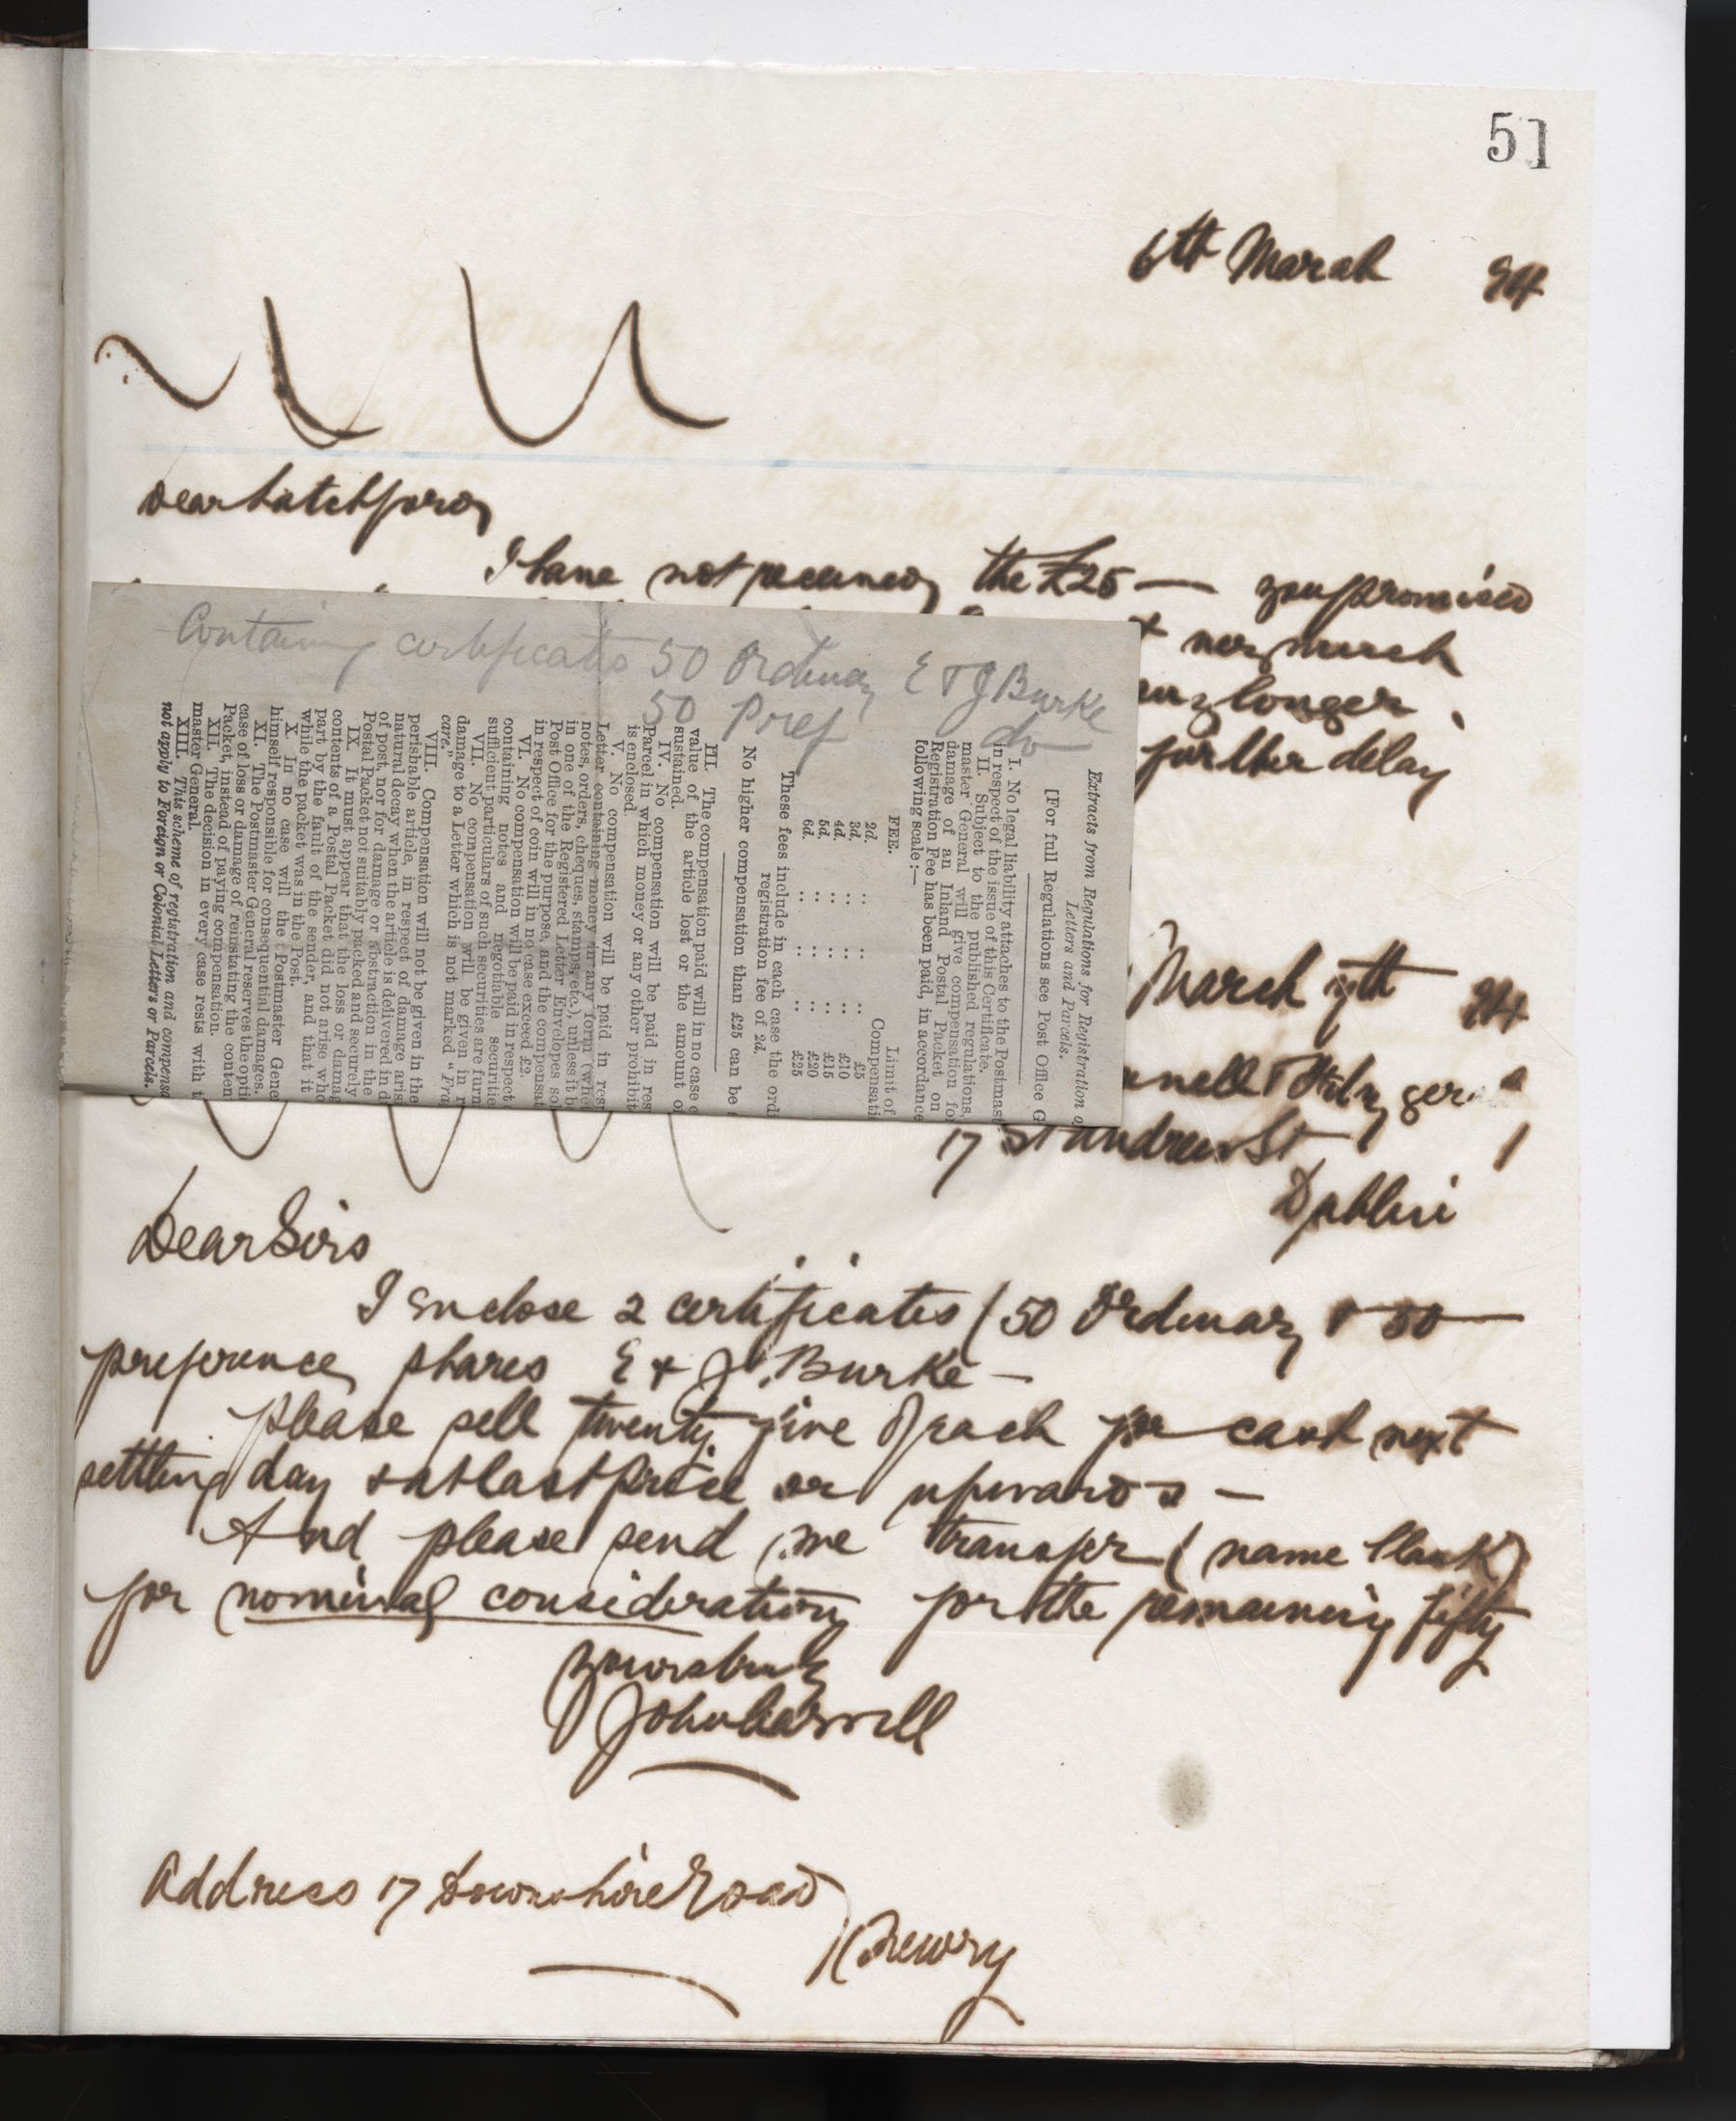 51
6th March 94
Dear Latchford
I have not received the £25 — you promised
& very much
any longer.
further delay
Containing certificates 50 Ordinary E & J Burke
50 Pref do
Extracts from Regulations for Registration o
Letters and Parcels.
[For full Regulations see Post Office G
I. No legal liability attaches to the Postmast
in respect of the issue of this Certificate.
II. Subject to the published regulations,
master General will give compensation fo
damage of an Inland Postal Packet on
Registration Fee has been paid, in accordance
following scale:—
FEE. Limit of
Compensati
2d. .. .. .. £5
3d. .. .. .. £10
4d. .. .. .. £15
5d. .. .. .. £20
6d. .. .. .. £25
These fees include in each case the ord
registration fee of 2d.
No higher compensation than £25 can be
III. The compensation paid will in no case e
value of the article lost or the amount o
sustained.
IV. No compensation will be paid in res
Parcel in which money or any other prohibit
is enclosed.
V. No compensation will be paid in resp
Letter containing money in any form (whet
notes, orders, cheques, stamps, etc.), unless it b
in one of the Registered Letter Envelopes so
Post Office for the purpose, and the compensat
in respect of coin will in no case exceed £2.
VI. No compensation will be paid in respect
containing notes and negotiable securitie
sufficient particulars of such securities are furn
VII. No compensation will be given in r
damage to a Letter which is not marked "Fra
care."
VIII. Compensation will not be given in the
perishable article, in respect of damage aris
natural decay when the article is delivered in d
of post, nor for damage or abstraction in the
Postal Packet not suitably packed and securely
IX. It must appear that the loss or damag
contents of a Postal Packet did not arise who
part by the fault of the sender, and that it
while the packet was in the Post.
X. In no case will the Postmaster Gene
himself responsible for consequential damages.
XI. The Postmaster General reserves the optio
case of loss or damage of reinstating the conten
Packet, instead of paying compensation.
XII. The decision in every case rests with t
master General.
XIII. This scheme of registration and compensa
not apply to Foreign or Colonial Letters or Parcels.
March 7th 94
17 St Andrew St
Dublin
Dear Sirs
I enclose 2 certificates (50 Ordinary & 50
preference shares E & J. Burke —
please sell twenty five of each for cash next
settling day & at last price or upwards —
And please send me transfer (name blank)
for nominal consideration for the remaining fifty
Yours truly
John Carvill
Address 17 Downshire Road
Newry